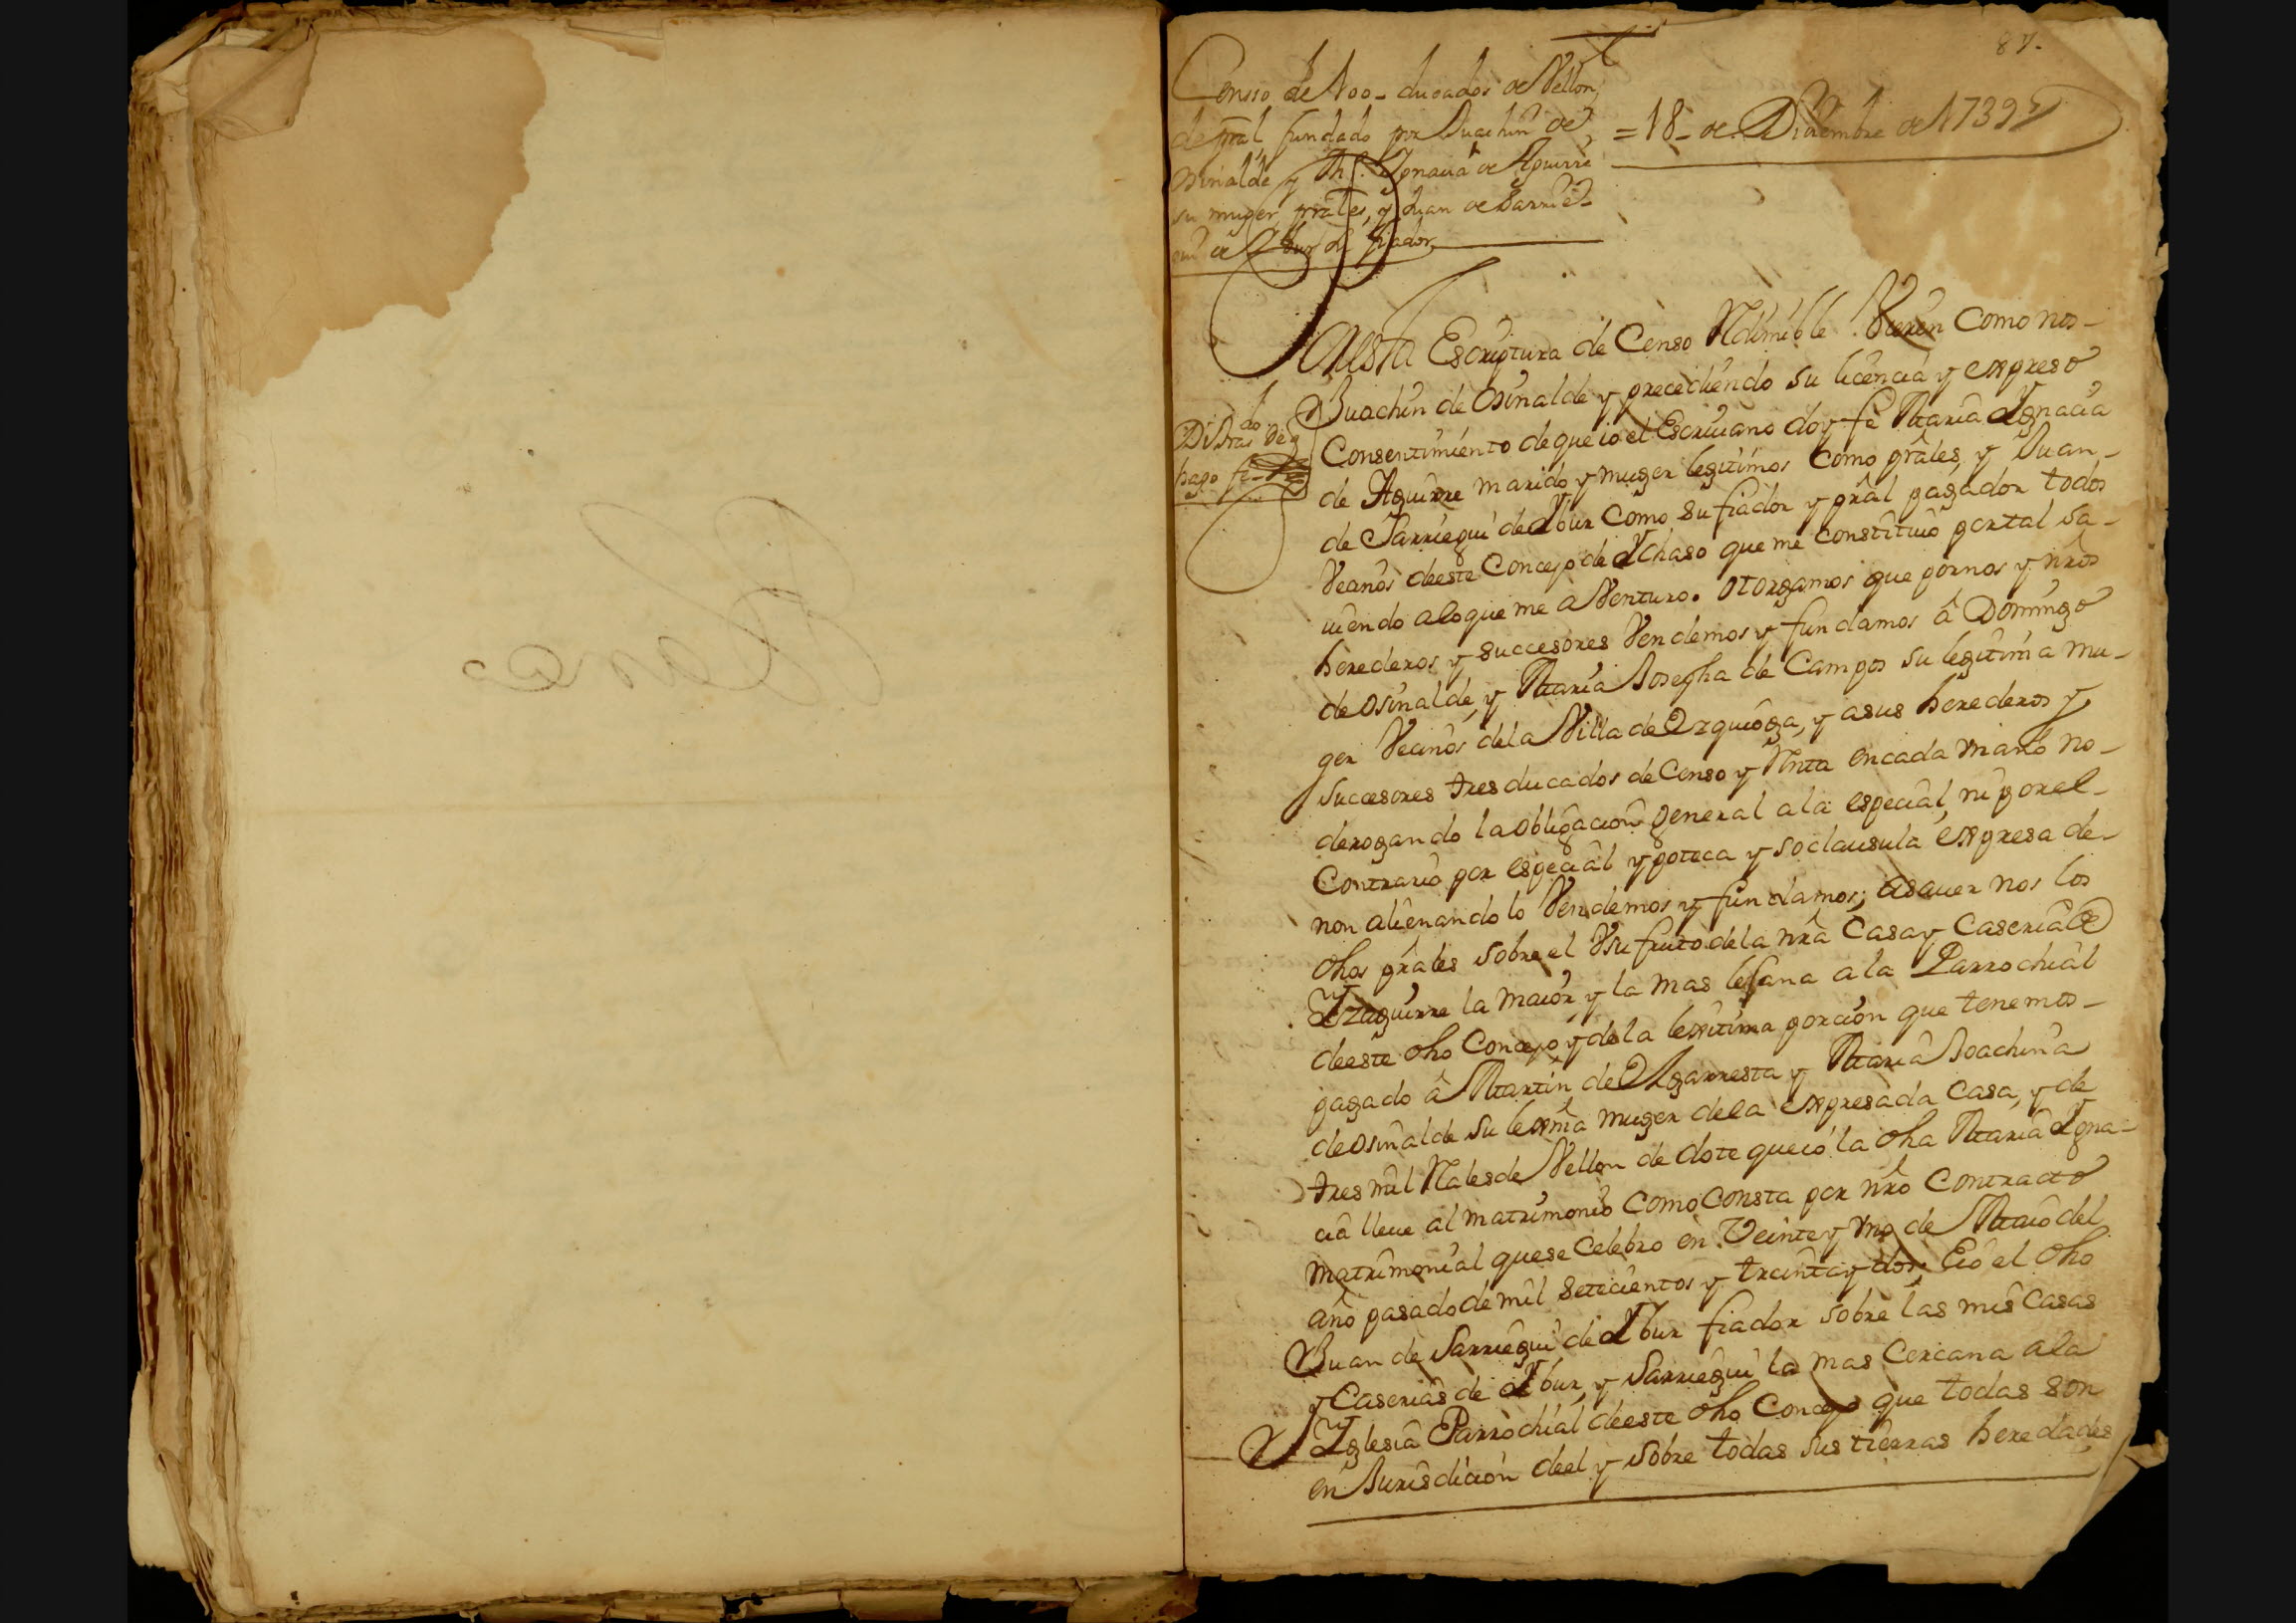 87.
Censso de 100_ ducados de Vellon
de pral fundado por Juachin de
Osinalde y Mª. Ygnacia de Aguirre
su muger prales, y Juan de Sarrie_
gui de Ybur su fiador
=18_ de Diziembre de 1739
En esta Escriptura de Censo Redimible Vieren como nos_
Juachin de Osinalde y precediendo su licencia y expreso
Consentimiento de que io el Escriuano doy fe Maria Ygnacia
de Aguirre marido y muger legitimos como prâles, y Juan_
de Sarriegui de Ybur como su fiador y prâl pagador todos
Vecinos de este Concejo de Ychaso que me constituio por tal sa_
uiendo alo que me aVenturo. Otorgamos que por nos y nrôs
herederos y succesores Vendemos y fundamos â Domingo
de Osinalde, y Maria Josepha de Campos su legitima mu_
ger Vecinos dela Villa de Ezquioga, y asus herederos y
succesores tres ducados de Censo y Renta en cada vn año no_
derogando la obligacion general ala especial, ni por el_
Contrario por especial ypoteca y so clausula expresa de_
non alienando lo Vendemos y fundamos; asauer nos los
dhos prâles sobre el Vsufruto dela nrâ Casa y Caseria de
Yzaguirre la maior y la mas lejana a la Parrochial
de este dho Concejo y de la lexitima porcion que tenemos_
pagado â Martin de Algarresta y Maria Joachina
de Osinalde su lexmâ muger dela expresada Casa, y de
tres mil Rales de Vellon de dote que io la dha Maria Ygna_
cia lleue al matrimonio como consta por nrô Contracto
matrimonial que se Celebro en Veinte y vno de Maio del
año pasado de mil setecientos y treinta y dos, E io el dho
Juan de Sarriegui de Ybur fiador sobre las mis Casas
y Caserias de Ybur, y Sarriegui la mas Cercana ala
Yglesia Parrochial de este dho Concejo que todas son
en Jurisdicion de el y sobre todas sus tierras heredades
hago fe